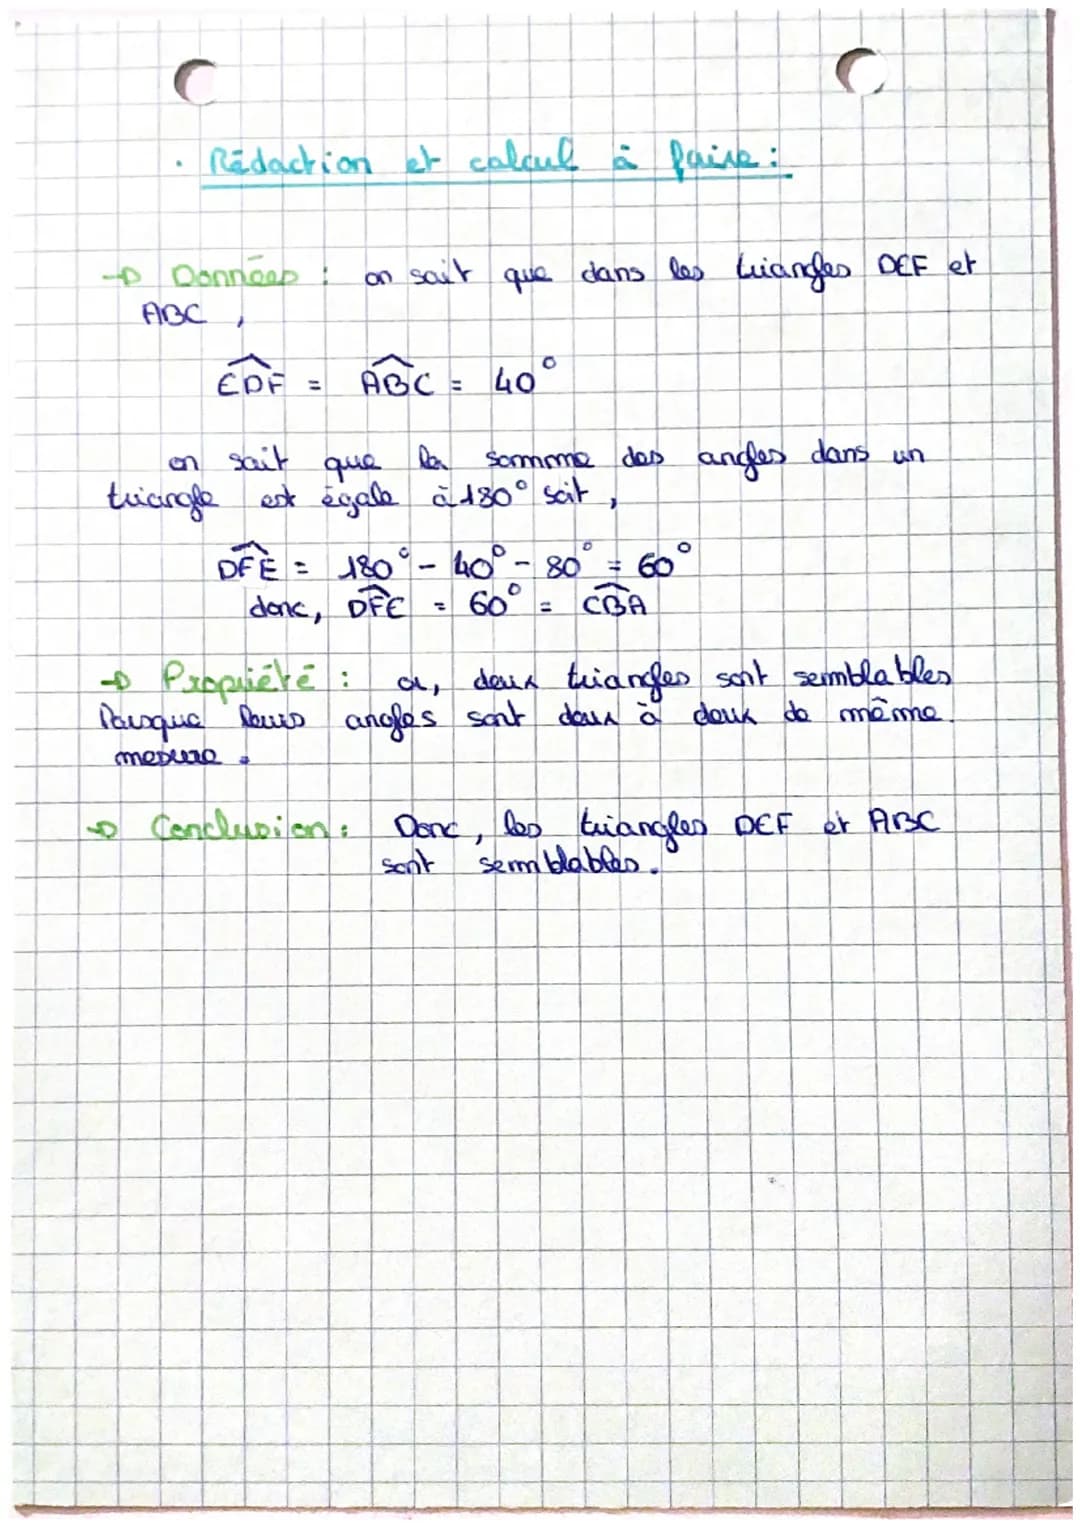 . Rédaction et calcul à faire :
→ Données : on sait que dans les triangles DEF et
ABC ,
EDF = ABC = 40°
on sait que la somme des angles dans un
triangle est égale à 180° soit ,
DFE = 180° - 40° - 80° = 60°
donc, DFE = 60° = CBA
→ Propriété : or, deux triangles sont semblables
lorsque leurs angles sont deux à deux de même
mesure .
→ Conclusion : Donc, les triangles DEF et ABC
sont semblables.